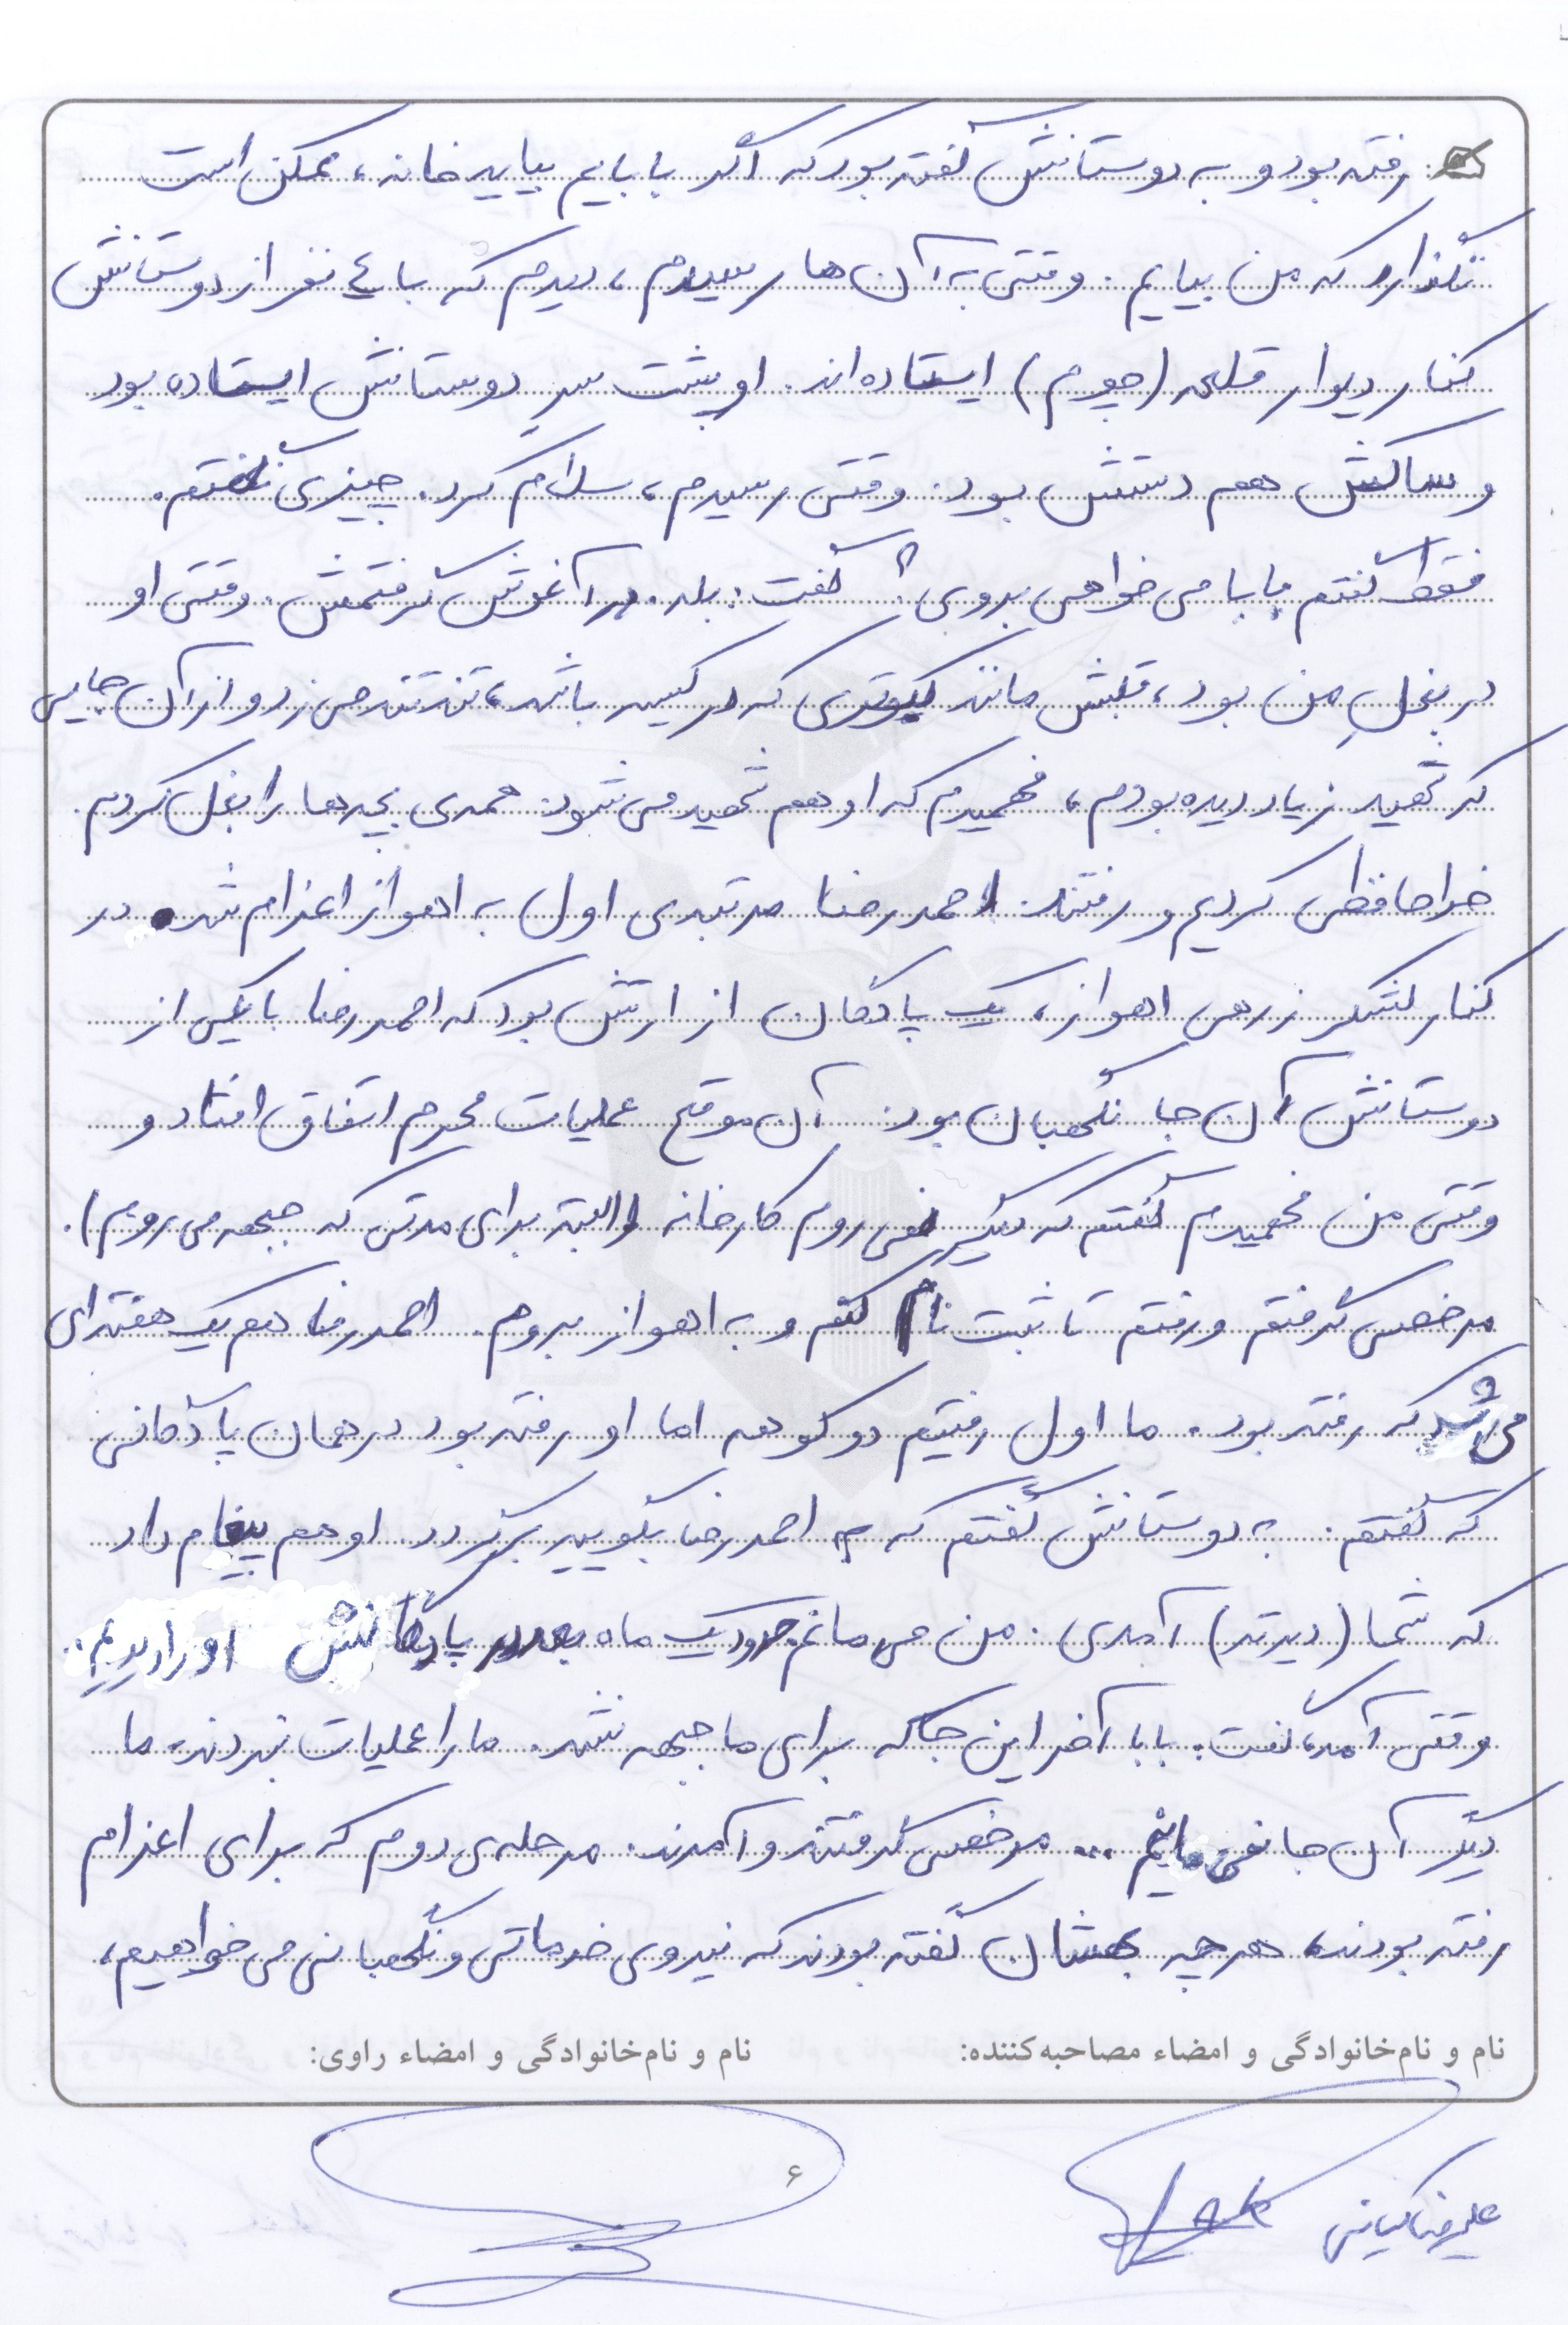 رفته بود و به دوستانش گفته بود که اگر با بابایم بیایید خانه، ممکن است
نگذارد که من بیایم. وقتی به آن ها رسیدم، دیدم که با ۴ نفر از دوستانش
کنار دیوار قلعه (چوم) ایستاده اند. او پشت سر دوستانش ایستاده بود
و ساکش هم دستش بود. وقتی رسیدم، سلام کرد. چیزی نگفتم.
فقط گفتم بابا می خواهی بروی؟ گفت: بله. در آغوش گرفتمش. وقتی او
در بغلِ من بود، قلبش مانند کبوتری که در کیسه باشد، تند تند می زد و از آن جایی
که شهید زیاد دیده بودم، فهمیدم که او هم شهید می شود. همه ی بچه ها را بغل کردم.
خداحافظی کردیم و رفتند. احمدرضا مرتبه ی اول به اهواز اعزام شد. در
کنار لشکر زرهی اهواز، یک پادگان از ارتش بود که احمدرضا با یکی از
دوستانش آن جا نگهبان بود. آن موقع عملیات محرم اتفاق افتاد و
وقتی من فهمیدم گفتم که دیگر نمی روم کارخانه (البته برای مدتی که جبهه می رویم).
مرخصی گرفتم و رفتم تا ثبت نام کنم و به اهواز بروم. احمدرضا هم یک هفته ای
می شد که رفته بود. ما اول رفتیم دوکوهه اما او رفته بود در همان پادگانی
که گفتم. به دوستانش گفتم که به احمدرضا بگویید برگردد. او هم پیغام داد
که شما (دیرتر) آمدی. من می مانم. حدود یک ماه بعد در پادگانش او را دیدیم.
وقتی آمد، گفت: بابا آخر این جا که برای ما جبهه نشد. ما را عملیات نبردند. ما
دیگر آن جا نمی مانیم ... مرخصی گرفتند و آمدند. مرحله ی دوم که برای اعزام
رفته بودند، هر چه بهشان گفته بودند که نیروی خدماتی و نگهبانی می خواهیم،
نام و نام‌خانوادگی و امضاء مصاحبه‌کننده: نام و نام‌خانوادگی و امضاء راوی:
علیرضا کیانی
۶